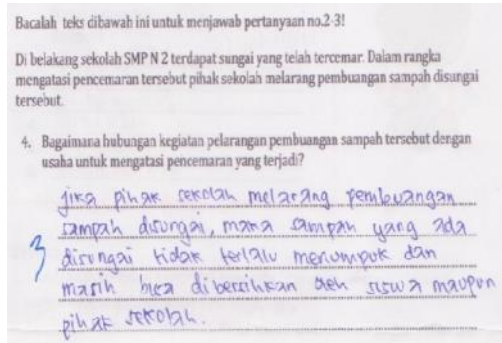 Bacalah teks dibawah ini untuk menjawab pertanyaan no.2-3!
Di belakang sekolah SMP N 2 terdapat sungai yang telah tercemar. Dalam rangka
mengatasi pencemaran tersebut pihak sekolah melarang pembuangan sampah disungai
tersebut.
4. Bagaimana hubungan kegiatan pelarangan pembuangan sampah tersebut dengan
usaha untuk mengatasi pencemaran yang terjadi?
jika pihak sekolah melarang pembuangan
sampah disungai, maka sampah yang ada
3
disungai tidak terlalu menumpuk dan
masih bisa dibersihkan oleh siswa maupun
pihak sekolah.